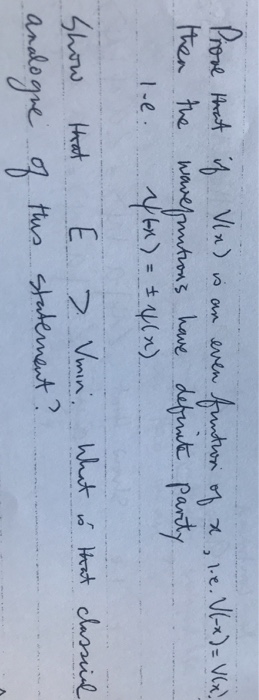 Prove that if V(x) is an even function of x, i.e. V(-x) = V(x)
then the wavefunctions have definite parity
i.e. ψ(-x) = ± ψ(x)
Show that E > Vmin. What is that classical
analogue of this statement?